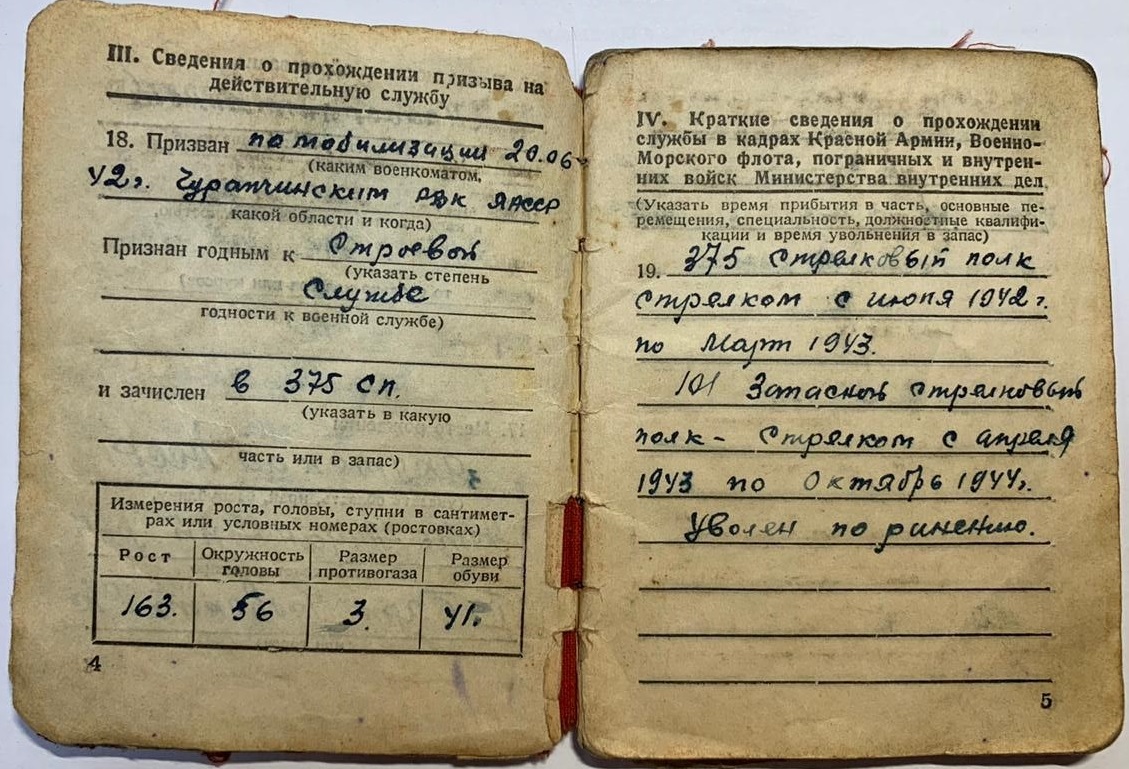 III. Сведения о прохождении призыва на
действительную службу
18. Призван по мобилизации 20.06-
(каким военкоматом,
42г. Чурапчинским РВК ЯАССР
какой области и когда)
Признан годным к Строевой
(указать степень
Службе
годности к военной службе)
и зачислен в 375 сп.
(указать в какую
часть или в запас)
Измерения роста, головы, ступни в сантимет-
рах или условных номерах (ростовках)
Рост Окружность головы Размер противогаза Размер обуви
163. 56 3. 41.
4
IV. Краткие сведения о прохождении
службы в кадрах Красной Армии, Военно-
Морского флота, пограничных и внутрен-
них войск Министерства внутренних дел
(Указать время прибытия в часть, основные пе-
ремещения, специальность, должностные квалифи-
кации и время увольнения в запас)
19. 375 стрелковый полк
стрелком с июня 1942г.
по Март 1943.
101 Запасной стрелковый
полк - Стрелком с апреля
1943 по Октябрь 1944г.
Уволен по ранению.
5